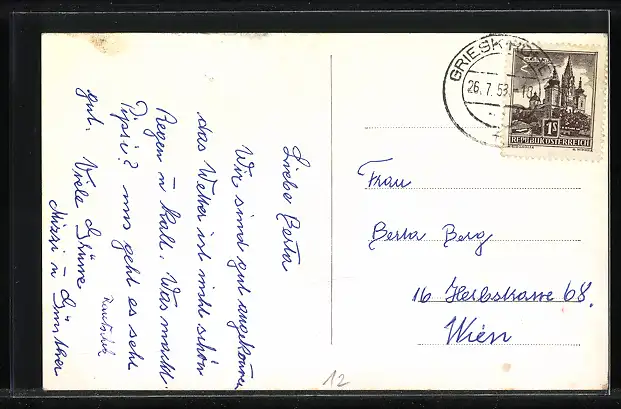 Liebe Berta
Wir sind gut angekommen
das Wetter ist nicht schön
Regen u Kalt. Was macht
Pipsi? uns geht es sehr
gut. Viele Grüsse
Mizzi u Günther
GRIESKIRCHEN
26. 7. 59 - 18
1S
REPUBLIK ÖSTERREICH
Frau
Berta Berg
16 Herbstrasse 68.
Wien
12